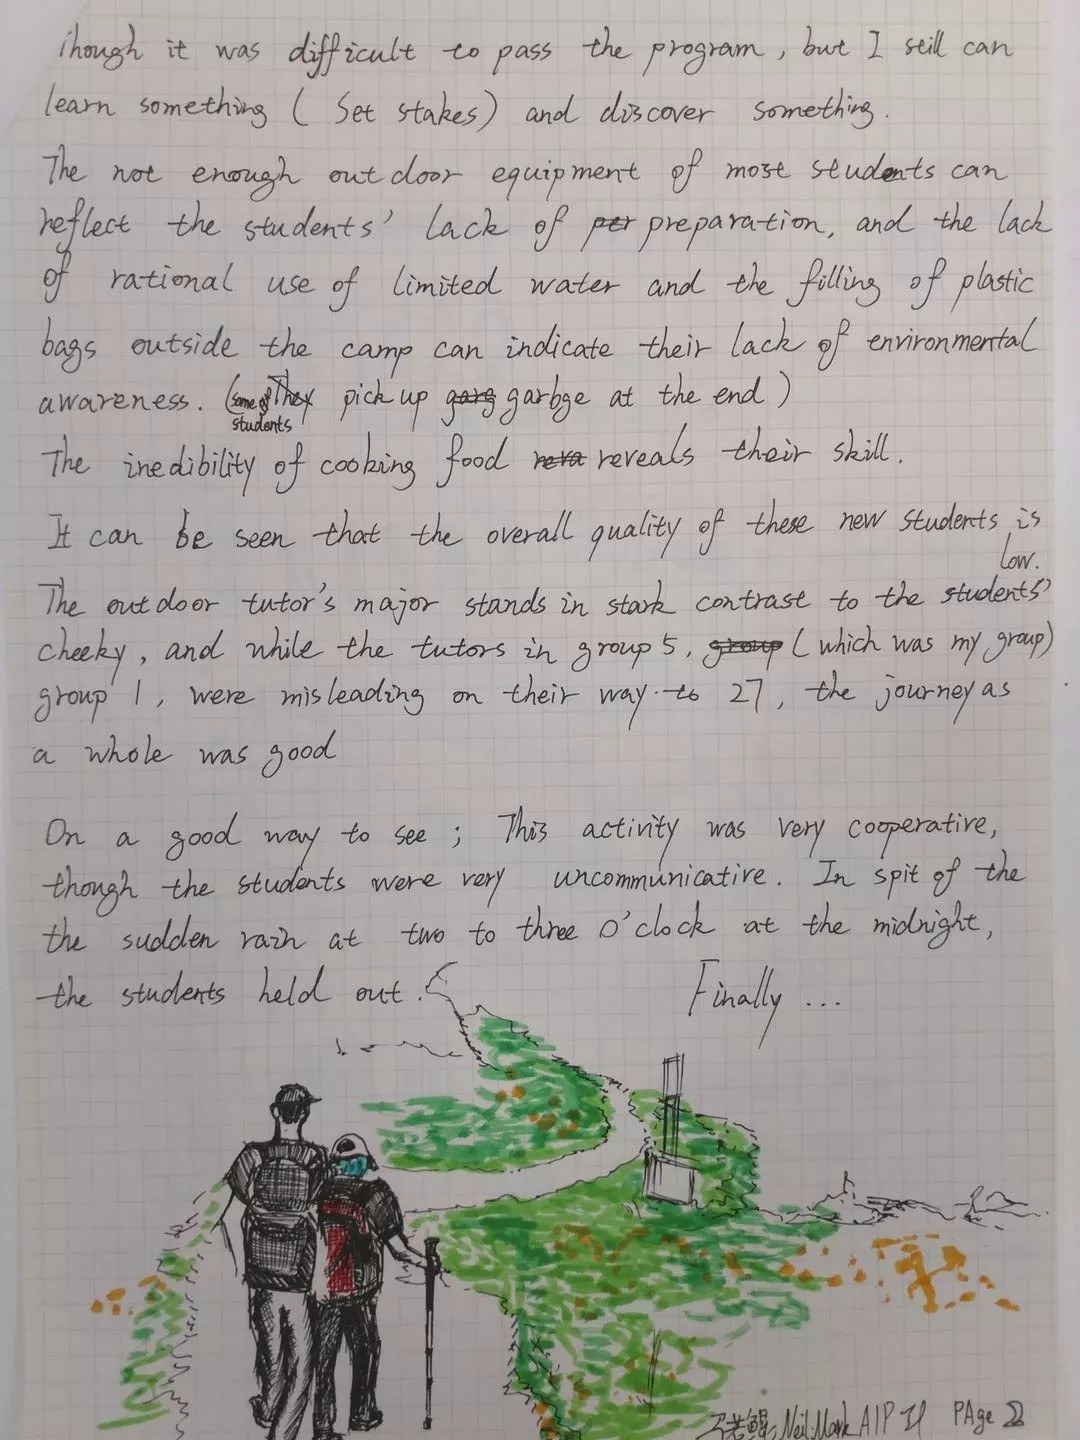 Though it was difficult to pass the program, but I still can
learn something ( Set stakes) and discover something.
The not enough outdoor equipment of most students can
reflect the students' lack of per preparation, and the lack
of rational use of limited water and the filling of plastic
bags outside the camp can indicate their lack of environmental
awareness. (some of They pick up garg garbge at the end )
students
The inedibility of cooking food reva reveals their skill.
It can be seen that the overall quality of these new students is
low.
The outdoor tutor's major stands in stark contrast to the students'
cheeky, and while the tutors in group 5, group ( which was my group)
group 1, were misleading on their way to 27, the journey as
a whole was good
On a good way to see ; This activity was very cooperative,
though the students were very uncommunicative. In spit of the
the sudden rain at two to three O'clock at the midnight,
the students held out.
Finally ...
Neil.Mark AIP PAge 2